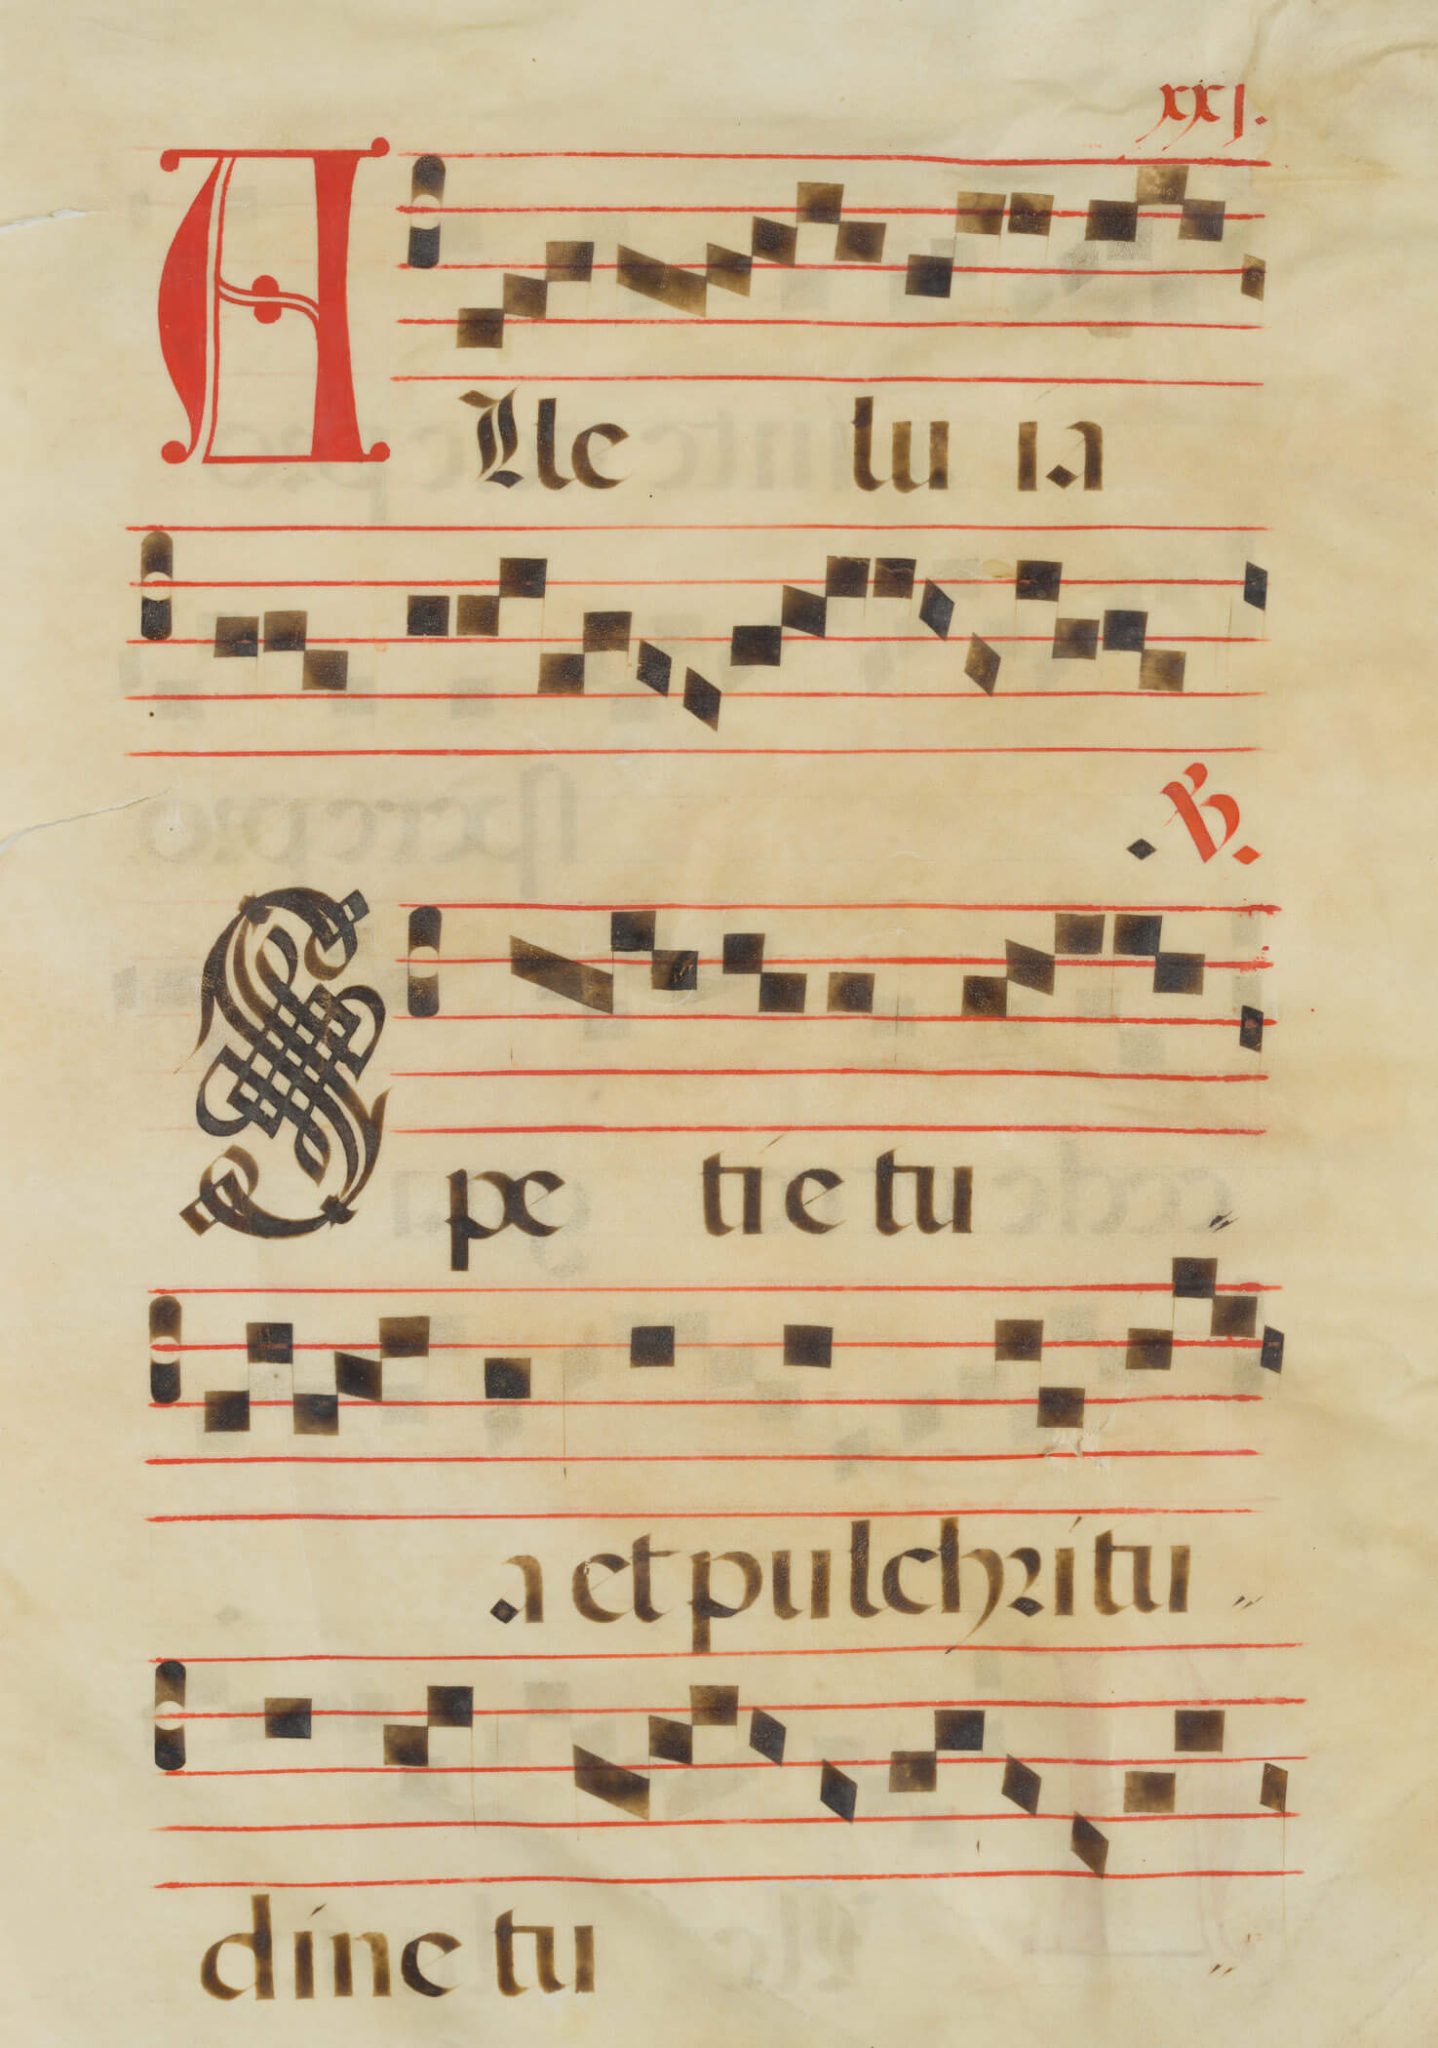 xxj.
Alle lu ia
.℣.
Spe tie tu
a et pulchritu
dine tu